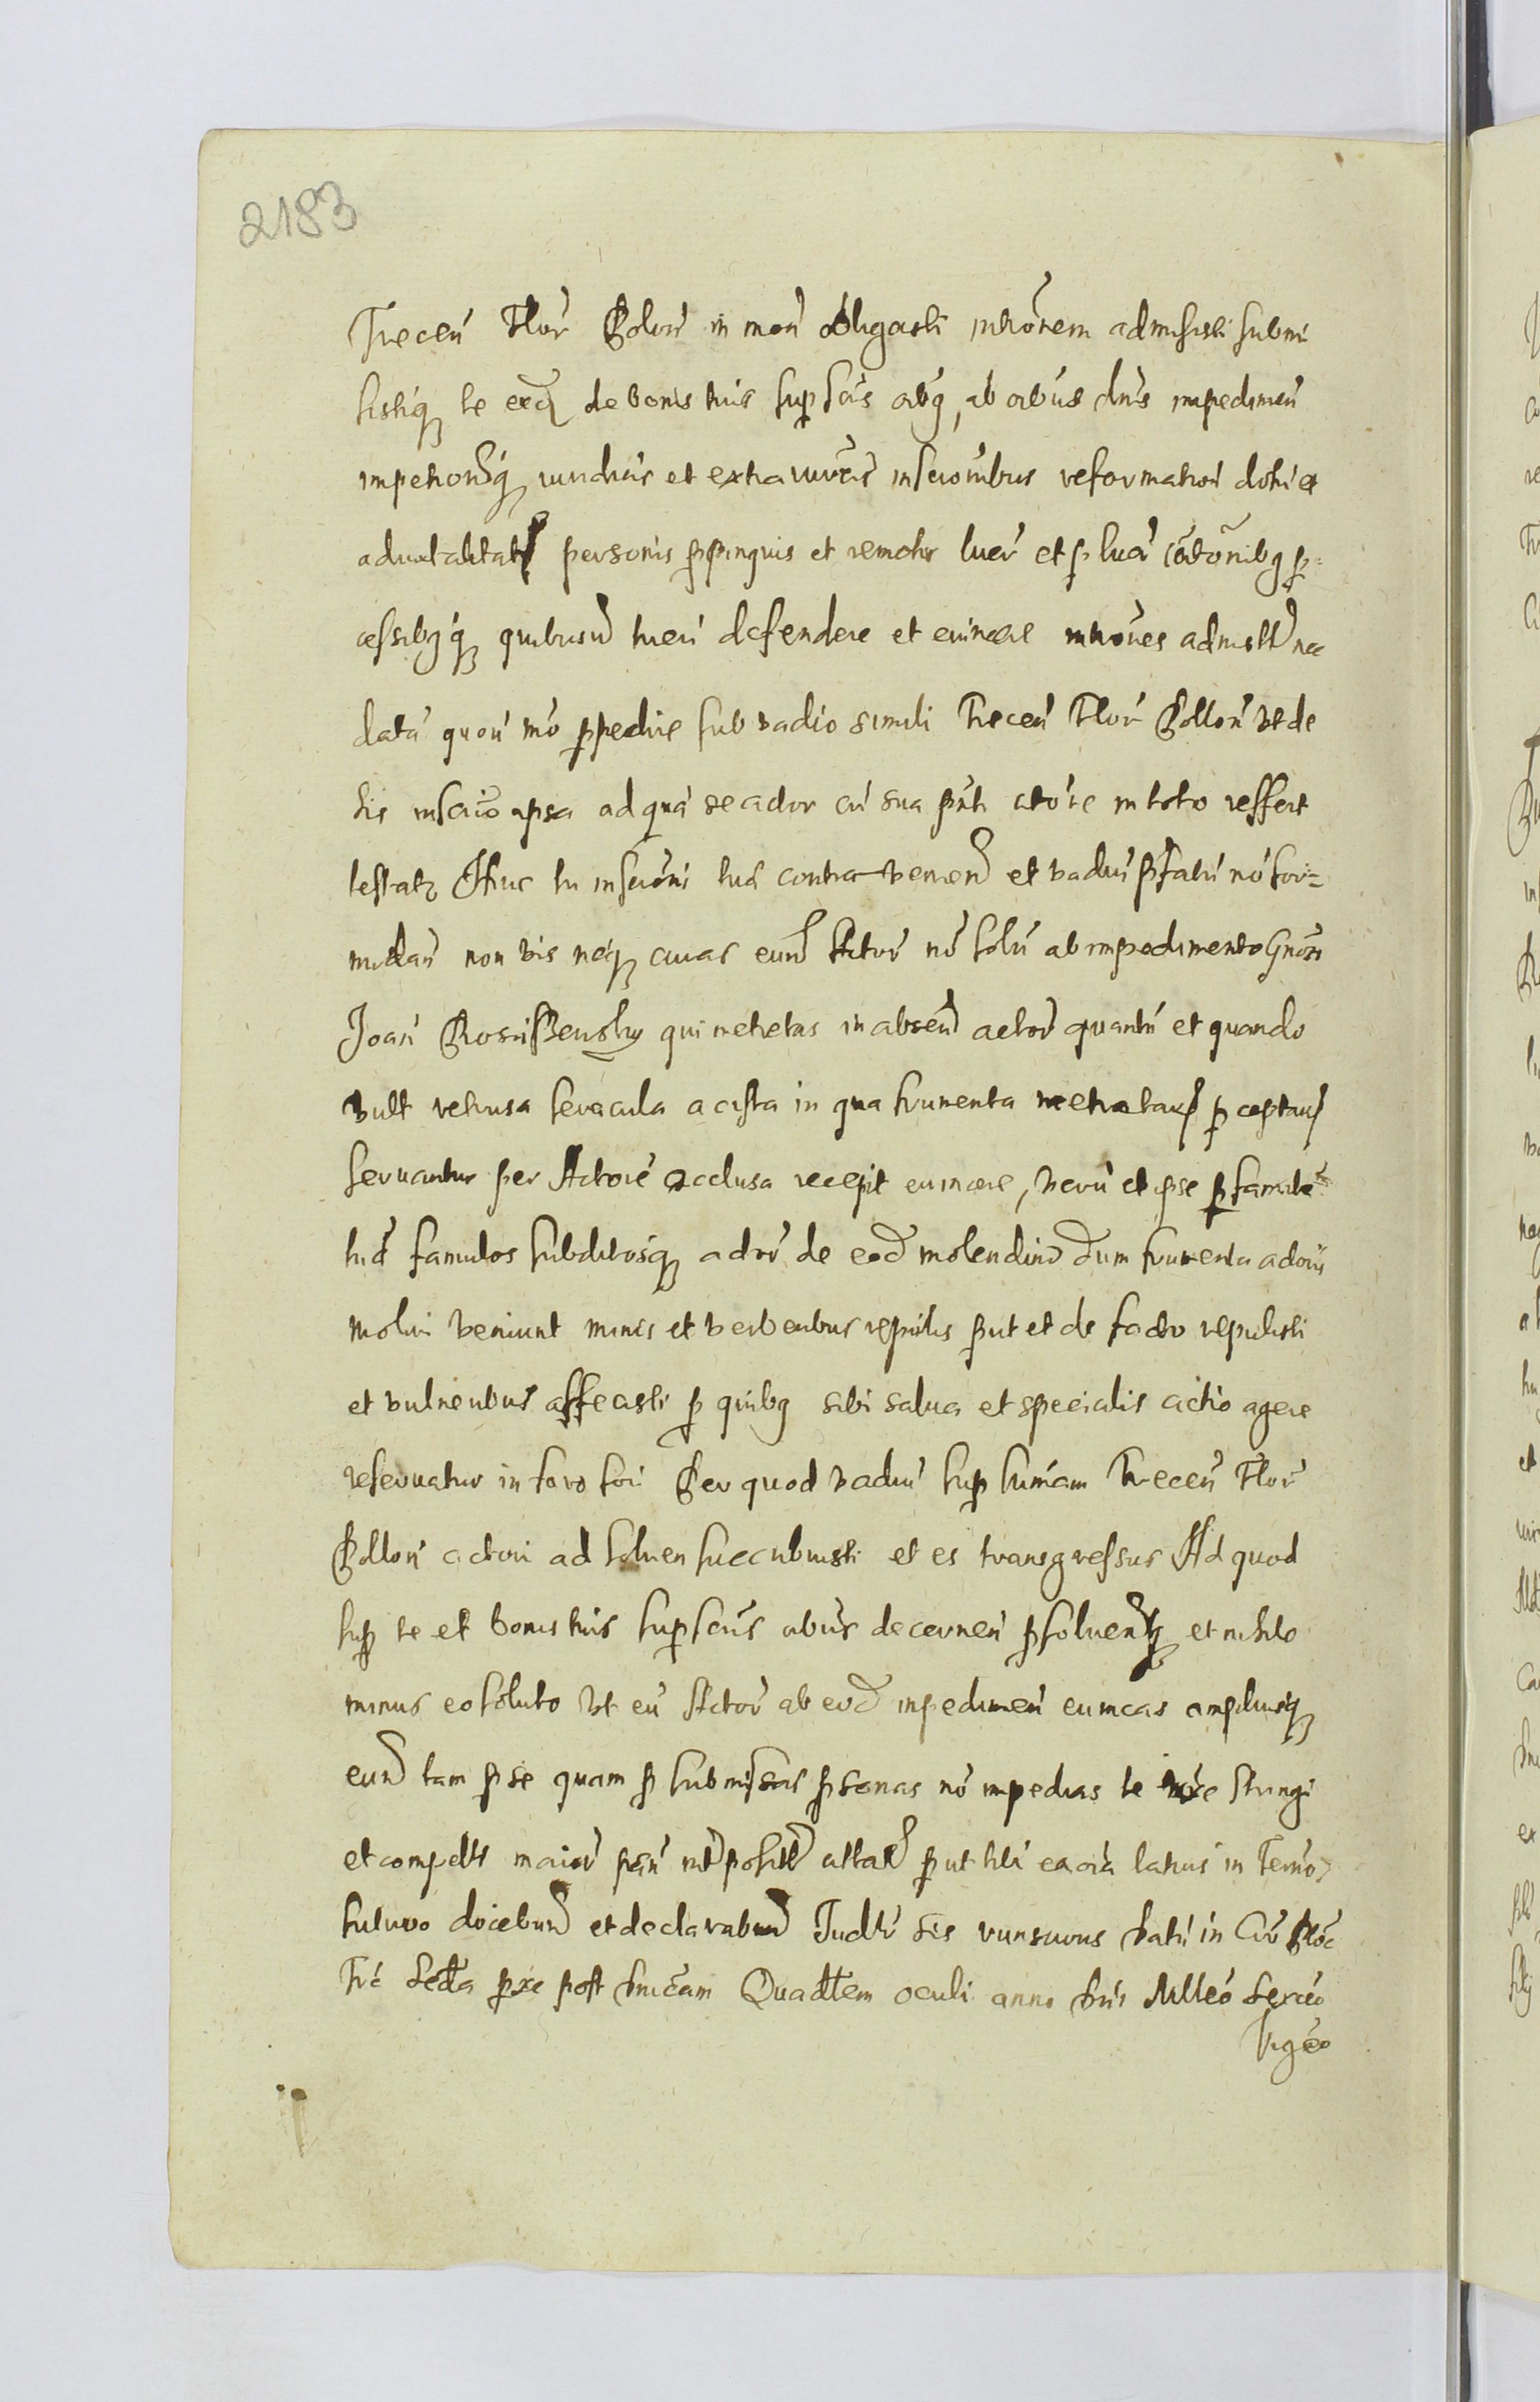 2183
Trecen Flor Polon in mon obligasti intromem admisisti submi
sistiq te exq de bonis tuis supscis obq, ab oibus dnis impedimen
impetionibq iuridicis et extraiurcis inscronibus reformation dotis et
advitalitat personis ppinquis et remotis lucr et p lucr citationibq p=
cessibqq quibusvis tueri defendere et evincere introes admitt nec
data quoui mo ppedire sub vadio simili Trecen Flor Pollon vt de
his inscrio ipsa ad qua se actor cu sua pnti actore in toto reffert
testatr Huc tu inscrioni tua contravenien et vadiu pfatu no for=
midan non vis neq curas eund Actor no solu ab impedimento Gnosi
Joan qui metretas in absen actor quantu et quando
vult retrusa seracula a cista in qua frumenta metretar p ceptar
servantur per Actore occlusa recepit evincere, veru et ipse p famile
tua famulos subditosq actor de eod molendino dum frumenta actoris
moliri veniunt minis et verberibus repulis put et de facto repulisti
et vulneribus affecisti p quibq sibi salva et specialis actio agere
reservatur in foro fori Per quod vadiu sup sumam Trecen Flor
Pollon actori ad solven succubuisti et es transgressus Ad quod
sup te et bonis tuis supscis obus decernen psolvenq et nihilo
minus eo soluto vt eu Actor ab eod inpedimen evincas ampliusq
eund tam p se quam p submissas psonas no impedias te iure stringi
et compelli maior paen interposit attat put tibi ea oia latius in Termo
futuro docebun et declarabun Judtr sis rursurus Datu in Cur
Fra Secda pxe post Dnicam Quadtem oculi anno Dni Milleo Sexceo
Vigeo